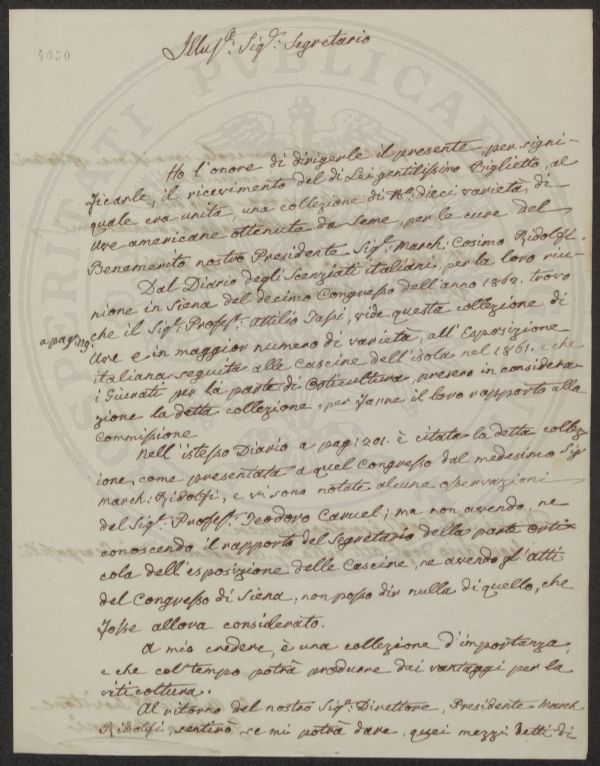 4030
Illus.: Sig.: Segretario
Ho l'onore di dirigerle il presente, per signi-
ficarle, il ricevimento del di Lei gentilissimo Biglietto, al
quale era unita, una collezione di N.º dieci varietà, di
Uve americane ottenute da Seme, per le cure del
Benemerito nostro Presidente Sig.: March: Cosimo Ridolfi.
Dal Diario degli Scenziati italiani, per la loro riu-
nione in Siena del decimo Congresso dell'anno 1862. trovo
a pag: 119.
che il Sig.: Profess.: Attilio Tassi, vide questa collezione di
Uve e in maggior numero di varietà, all'Esposizione
italiana seguita alle Cascine dell'isola nel 1861. e che
i Giurati per la parte di Orticultura, presero in considera-
zione la detta collezione, per farne il loro rapporto alla
Commissione
Nell'istesso Diario a pag: 201. è citata la detta collez-
ione, come presentata a quel Congresso dal medesimo Sig
March: Ridolfi, e vi sono notate alcune osservazioni
del Sig.: Profess.: Teodoro Caruel; ma non avendo, ne
conoscendo il rapporto del Segretario della parte orti-
cola dell'esposizione delle Cascine, ne avendo gl'atti
del Congresso di Siena, non posso dir nulla di quello, che
fosse allora considerato.
A mio credere, è una collezione d'importanza,
e che col tempo potrà produrre dei vantaggi per la
viticoltura.
Al ritorno del nostro Sig.: Direttore, Presidente March
Ridolfi, sentirò se mi potrà dare, quei mezzi detti di